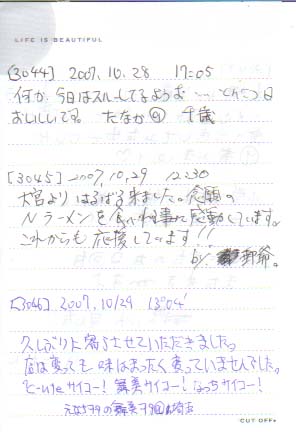 LIFE IS BEAUTIFUL
[3044] 2007.10.28 17:05
何か、今日はスルーしてるような
おいしいです。 たなか 千歳
[3045] 2007.10.29 12:30
大宮よりはるばる来ました。念願の
Nラーメンを食べれた事に感動しています。
これからも応援しています!!
by
[3046] 2007.10/29 13:04
久しぶりに寄らせていただきました。
店は変っても味はまったく変っていませんでした。
℃-uteサイコー! 舞美サイコー! なっちサイコー!
CUT OFF